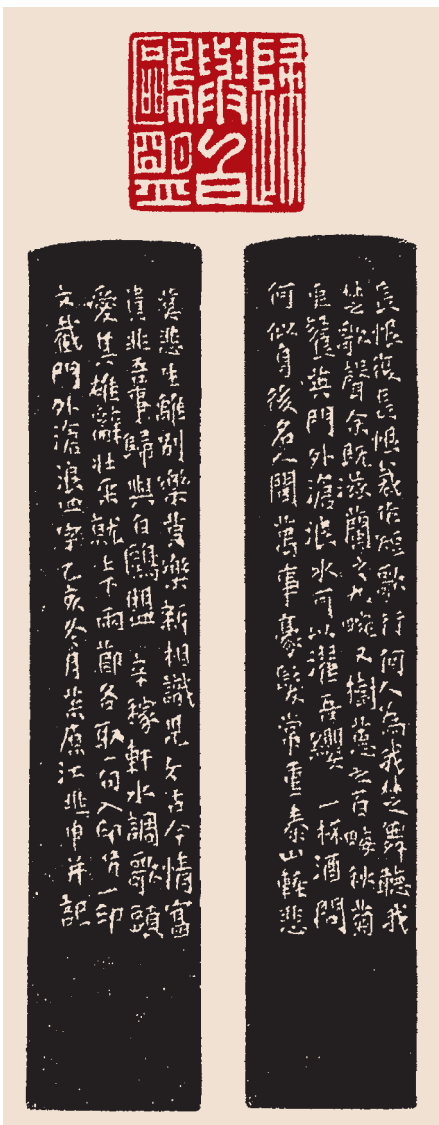 歸
與白
鷗盟
長恨復長恨裁作短歌行何人為我楚舞聽我
楚歌聲余既滋蘭之九畹又樹蕙之百畮秋菊
更餐英門外滄浪水可以濯吾纓一杯酒問
何似身後名人間萬事豪髮常重泰山輕悲
莫悲生離別樂莫樂新相識兒女古今情富
貴非吾事歸與白鷗盟 辛稼軒水調歌頭
愛其雄辭壯采就上下兩節各取一句入印旁一印
文截門外滄浪四字乙亥冬月茮原江兆申并記